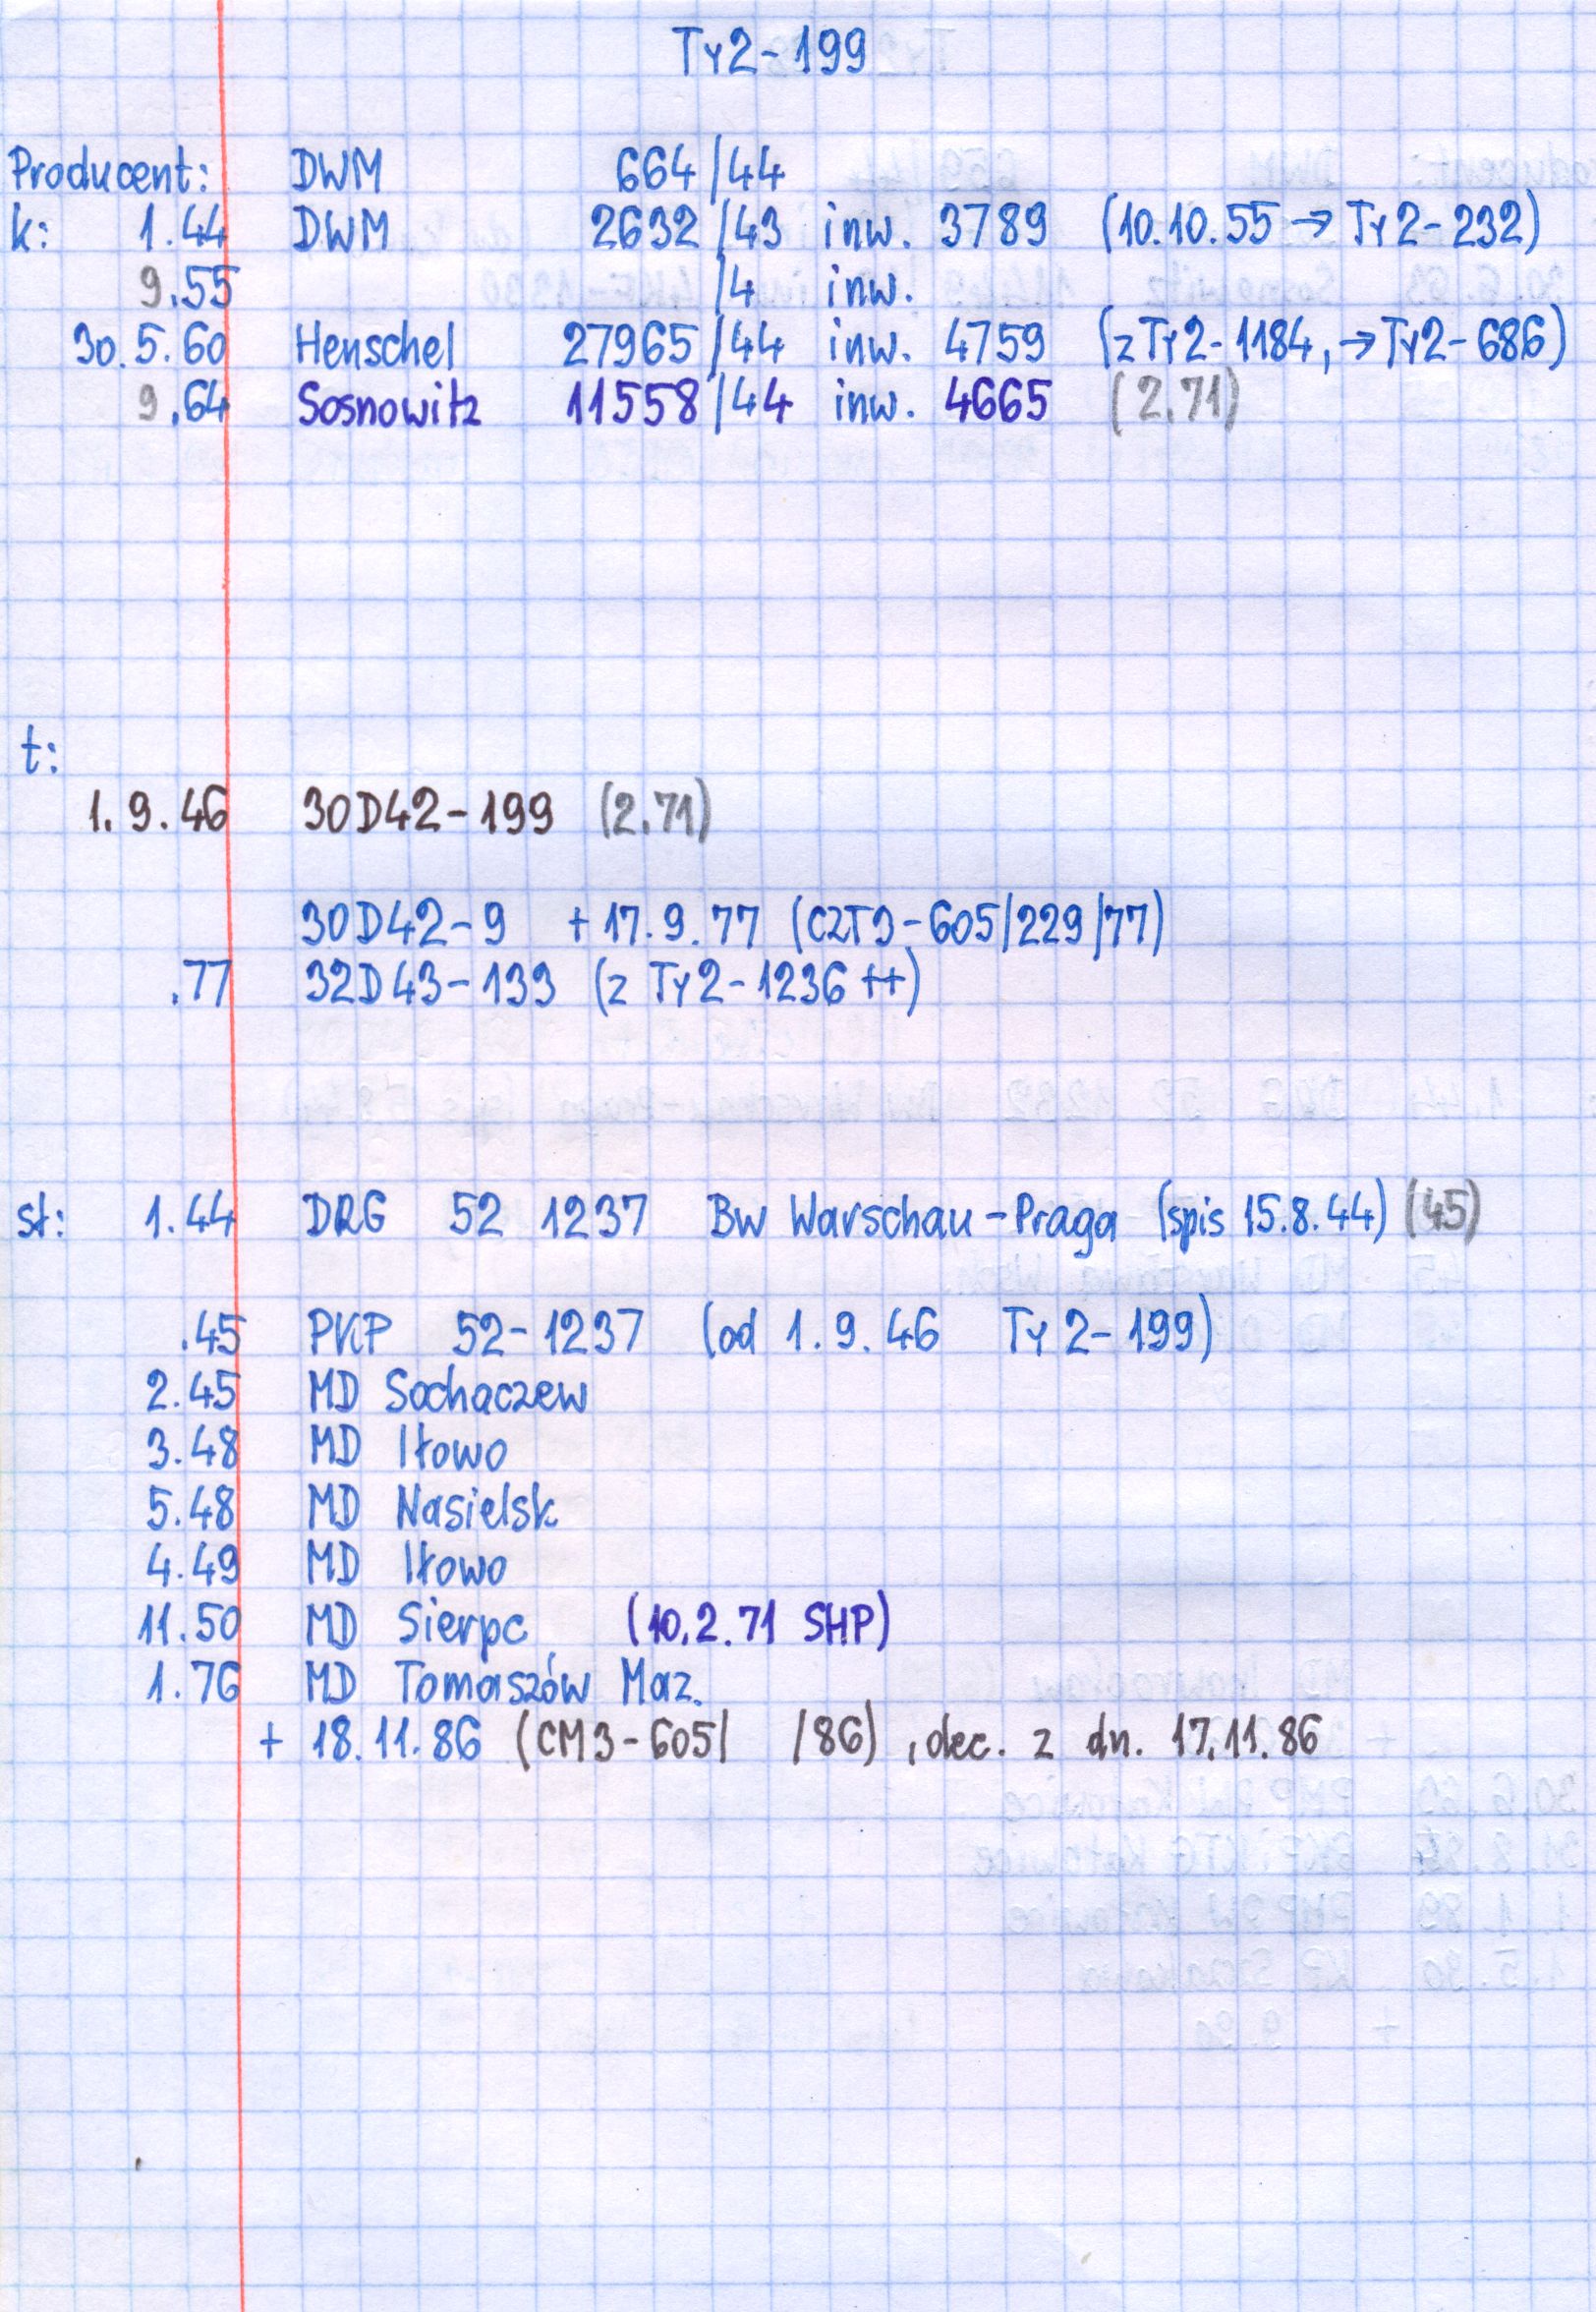 Ty2-199
Producent: DWM 664/44
k: 1.44 DWM 2632/43 inw. 3789 (10.10.55 → Ty2-232)
9.55 /4 inw.
30.5.60 Henschel 27965/44 inw. 4759 (z Ty2-1184, → Ty2-686)
9.64 Sosnowitz 11558/44 inw. 4665 (2.71)
t:
1.9.46 30D42-199 (2.71)
30D42-9 + 17.9.77 (CZT3-605/229/77)
.77 32D43-133 (z Ty2-1236 ++)
st: 1.44 DRG 52 1237 Bw Warschau-Praga (spis 15.8.44) (45)
.45 PKP 52-1237 (od 1.9.46 Ty2-199)
2.45 MD Sochaczew
3.48 MD Iłowo
5.48 MD Nasielsk
4.49 MD Iłowo
11.50 MD Sierpc (10.2.71 SHP)
1.76 MD Tomaszów Maz.
+ 18.11.86 (CM3-605/ /86), dec. z dn. 17.11.86